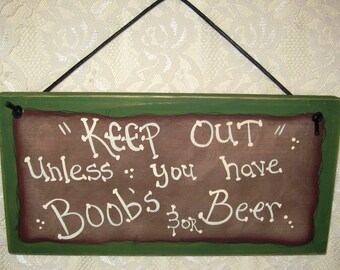 "KEEP OUT"
Unless : you have
Boob's &/or Beer